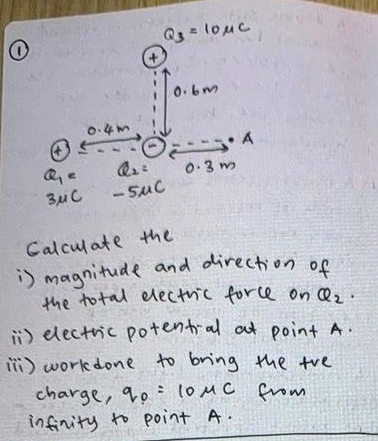 ①
Q₃ = 10 μC
+
0.6m
0.4m
+
-
A
0.3 m
Q₁ =
3μC
Q₂ =
-5μC
Calculate the
i) magnitude and direction of
the total electric force on Q₂.
ii) electric potential at point A.
iii) workdone to bring the +ve
charge, q₀ = 10 μC from
infinity to point A.